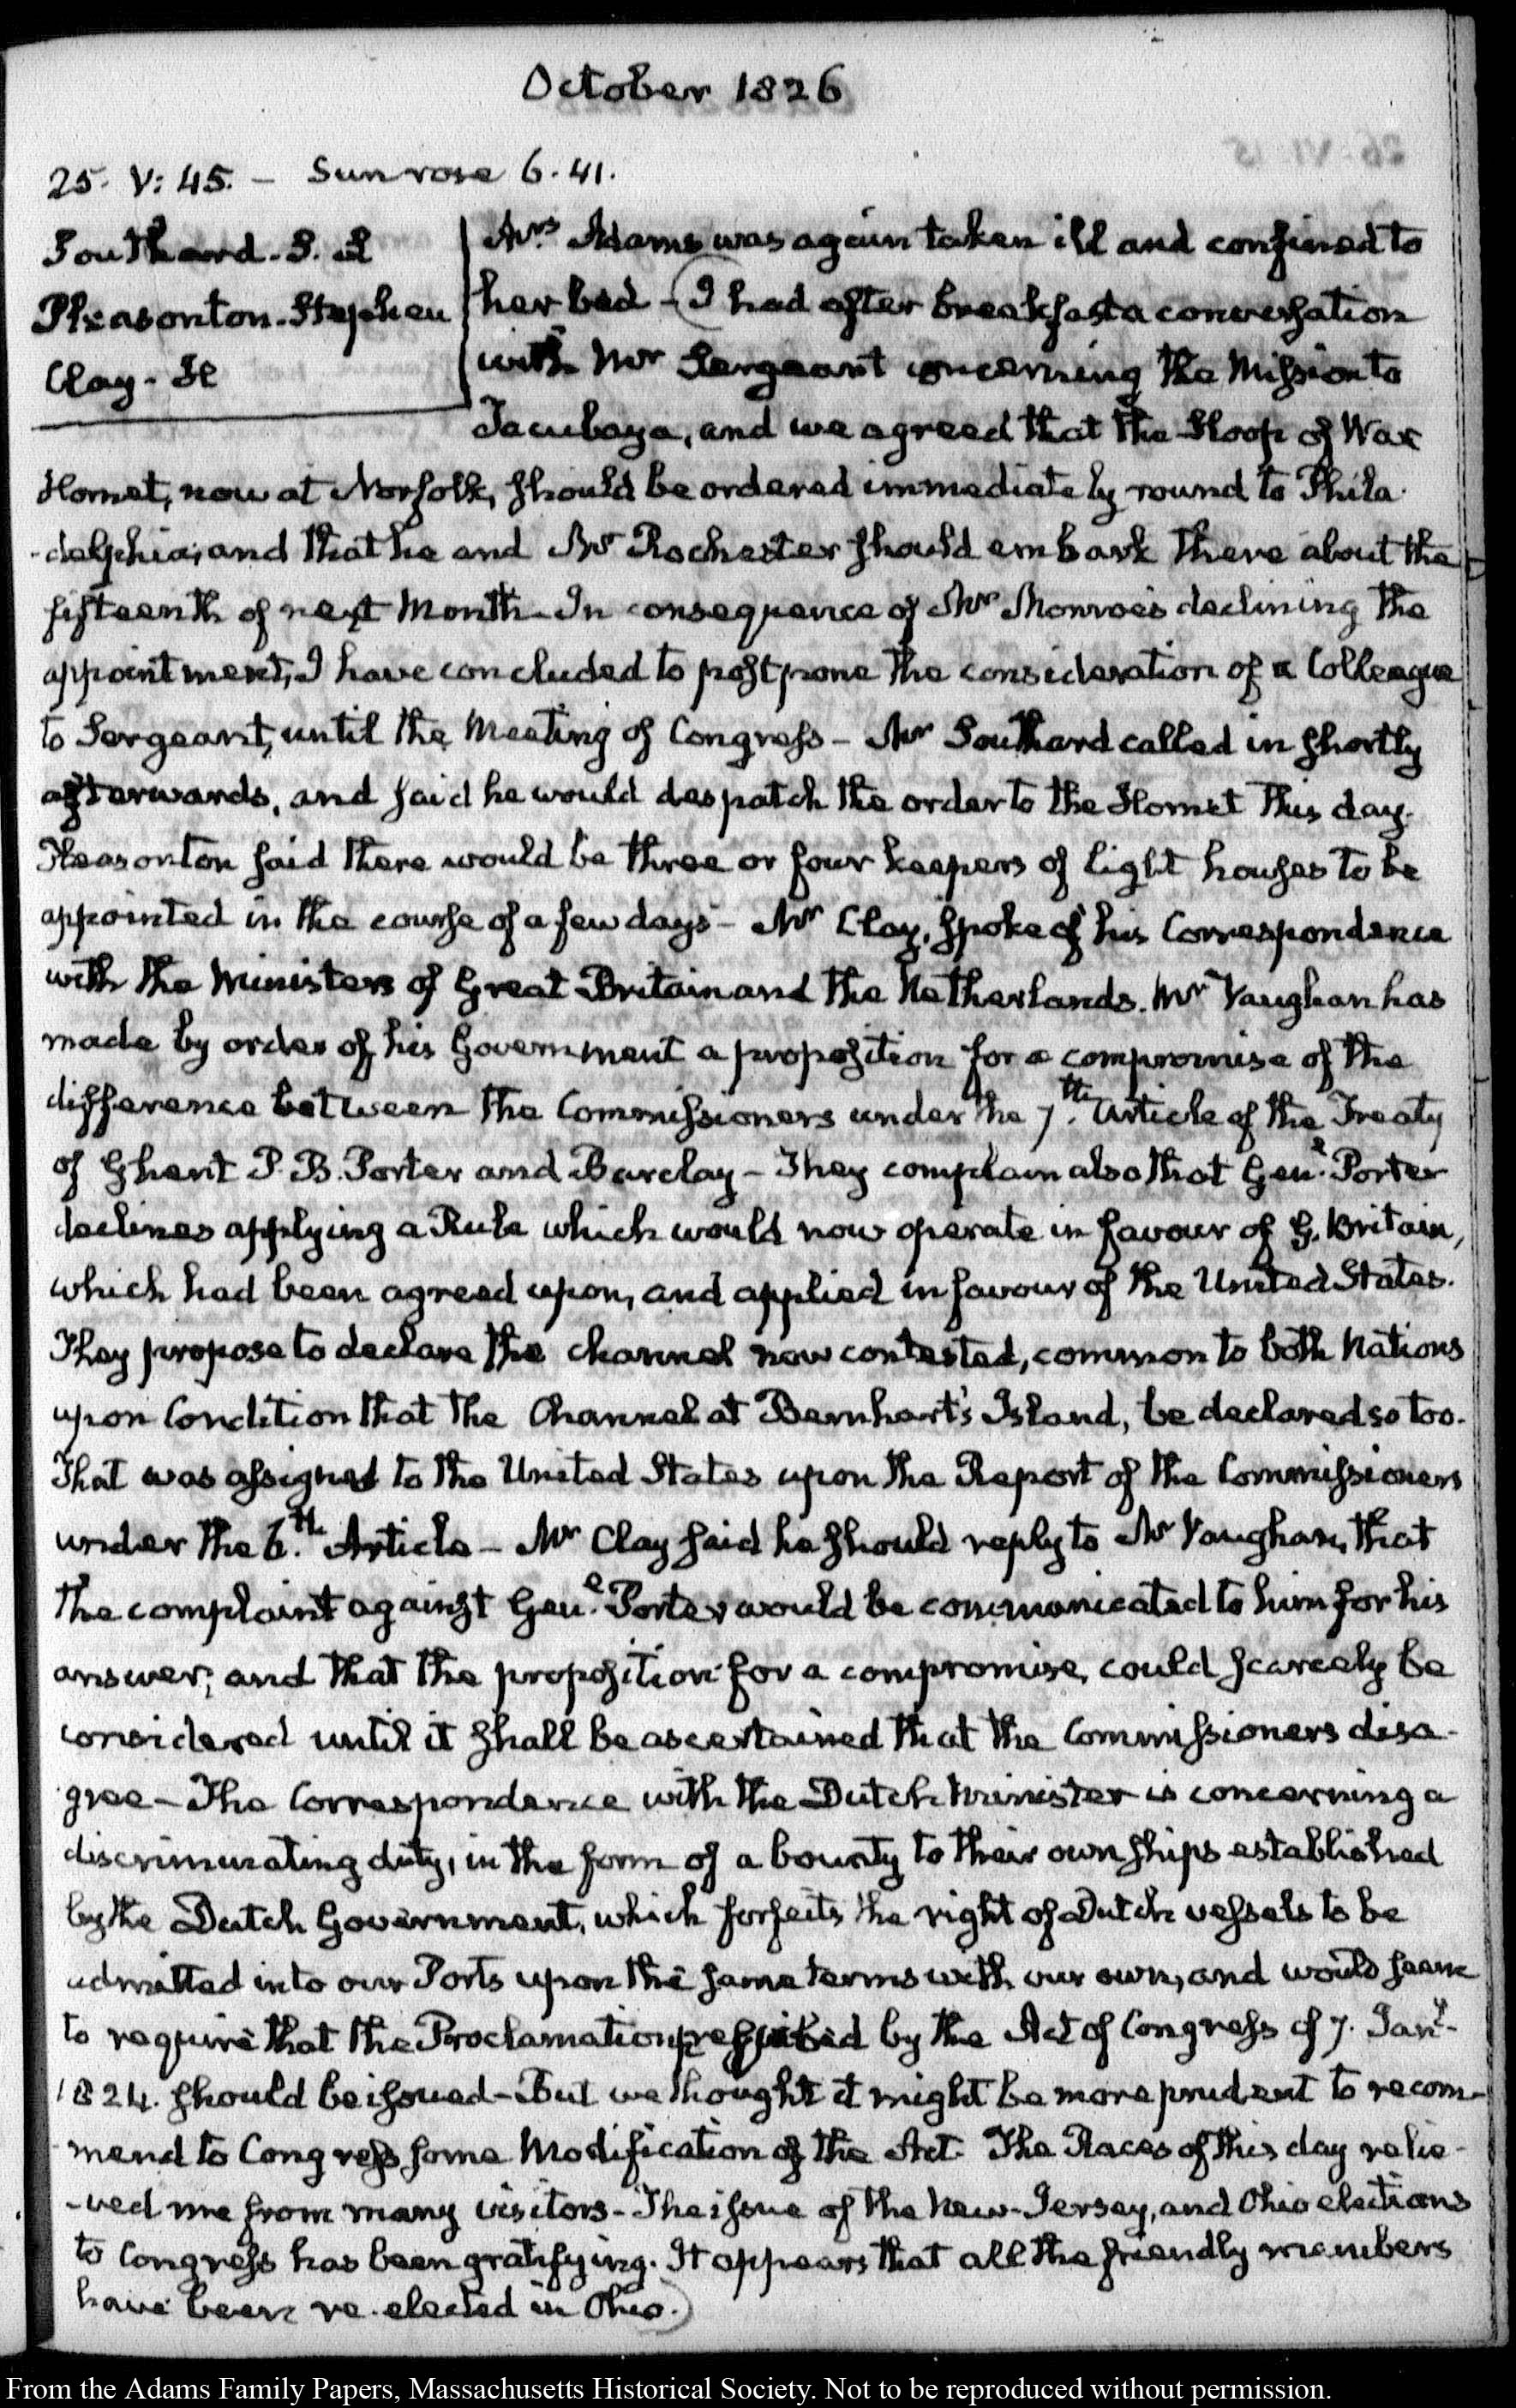 October 1826
25. V: 45. – Sun rose 6. 41.
Southard. S. L
Pleasonton. Stephen
Clay. H
Mrs Adams was again taken ill and confined to
her bed – (I had after breakfast a conversation
with Mr Sergeant concerning the Mission to
Tacubaya, and we agreed that the Sloop of War
Hornet, now at Norfolk, should be ordered immediately round to Phila
-delphia; and that he and Mr Rochester should embark there about the
fifteenth of next Month – In consequence of Mr Monroe's declining the
appointment, I have concluded to postpone the consideration of a Colleague
to Sergeant, until the Meeting of Congress – Mr Southard called in shortly
afterwards, and said he would despatch the order to the Hornet this day.
Pleasonton said there would be three or four keepers of light houses to be
appointed in the course of a few days – Mr Clay, spoke of his Correspondence
with the Ministers of Great Britain and the Netherlands. Mr Vaughan has
made by order of his Government a proposition for a compromise of the
difference between the Commissioners under the 7th. Article of the Treaty
of Ghent P. B. Porter and Barclay – They complain also that Genl. Porter
declines applying a Rule which would now operate in favour of G. Britain,
which had been agreed upon, and applied in favour of the United States.
They propose to declare the channel now contested, common to both Nations
upon Condition that the Channel at Barnhart's Island, be declared so too.
That was assigned to the United States upon the Report of the Commissioners
under the 6.th Article – Mr Clay said he should reply to Mr Vaughan, that
the complaint against Genl. Porter would be communicated to him for his
answer; and that the proposition for a compromise, could scarcely be
considered until it shall be ascertained that the Commissioners disa-
gree – The Correspondence with the Dutch Minister is concerning a
discriminating duty, in the form of a bounty to their own ships established
by the Dutch Government, which forfeits the right of Dutch vessels to be
admitted into our Ports upon the same terms with our own, and would seem
to require that the Proclamation prescribed by the Act of Congress of 7. Jany.
1824. should be issued – But we thought it might be more prudent to recom-
mend to Congress some Modification of the Act. The Races of this day relie-
-ved me from many visitors – The issue of the New-Jersey, and Ohio elections
to Congress has been gratifying. It appears that all the friendly members
have been re-elected in Ohio.)
From the Adams Family Papers, Massachusetts Historical Society. Not to be reproduced without permission.